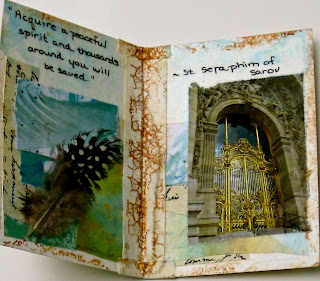 "Acquire a peaceful
spirit and thousands
around you will
be saved."
~ St. Seraphim of
Sarov